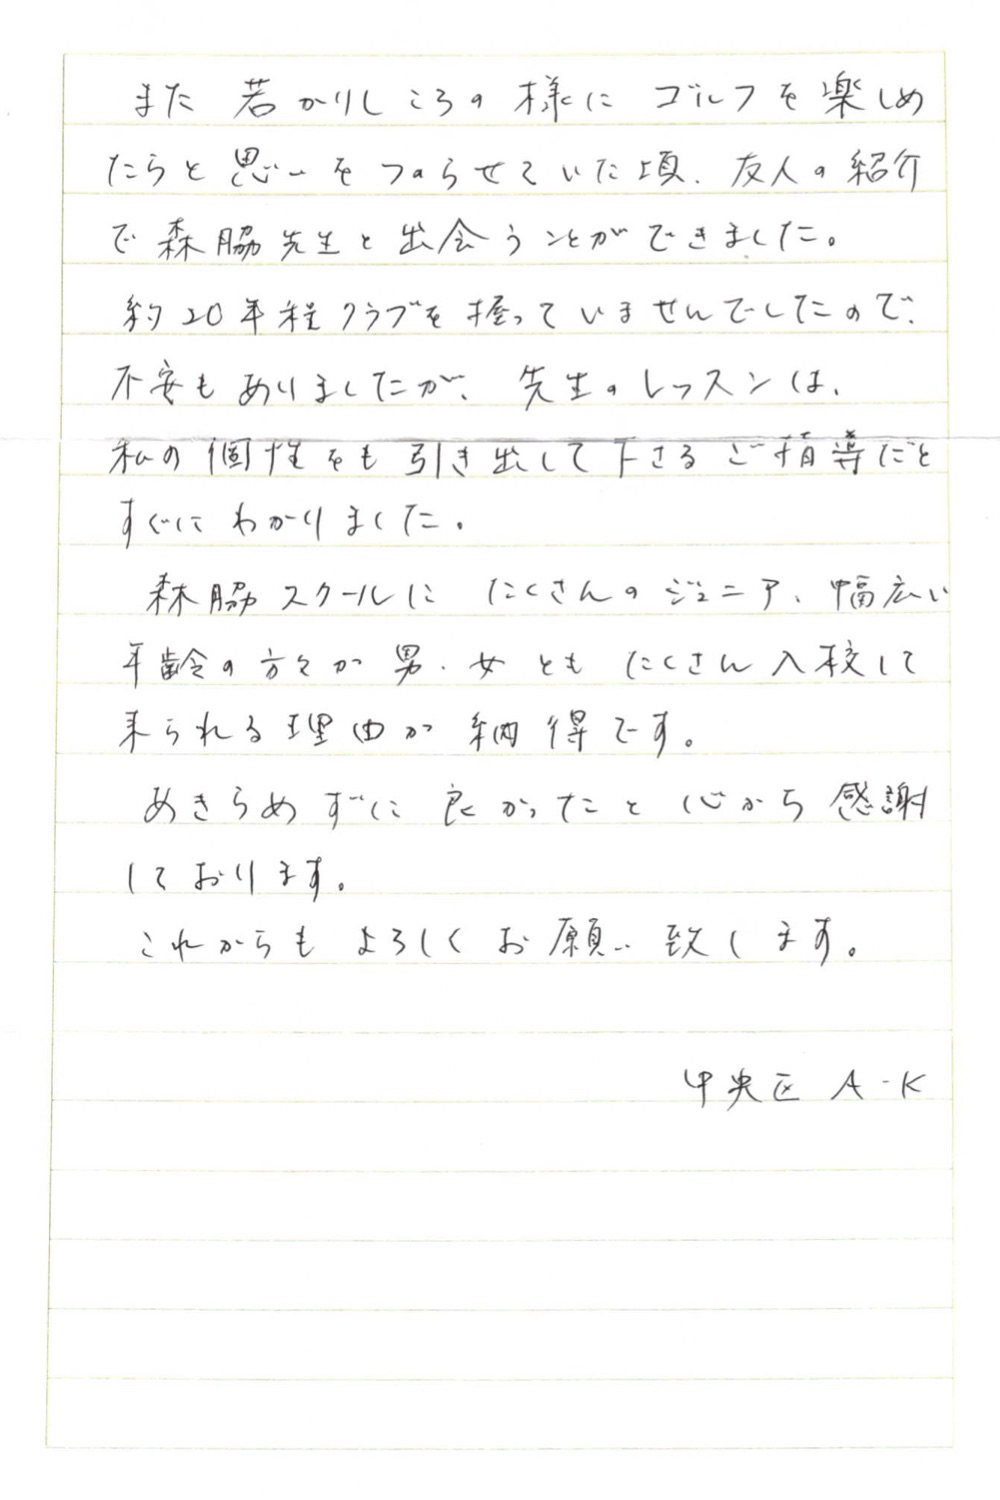 また 若かりしころの様に ゴルフを楽しめ
たらと思いをつのらせていた頃、友人の紹介
で森脇先生と出会うことができました。
約20年程クラブを握っていませんでしたので、
不安もありましたが、先生のレッスンは、
私の個性をも引き出して下さるご指導だと
すぐにわかりました。
森脇スクールに たくさんのジュニア、幅広い
年齢の方々が男、女ともたくさん入校して
来られる理由が納得です。
あきらめずに良かったと心から感謝
しております。
これからもよろしくお願い致します。
中央区 A・K